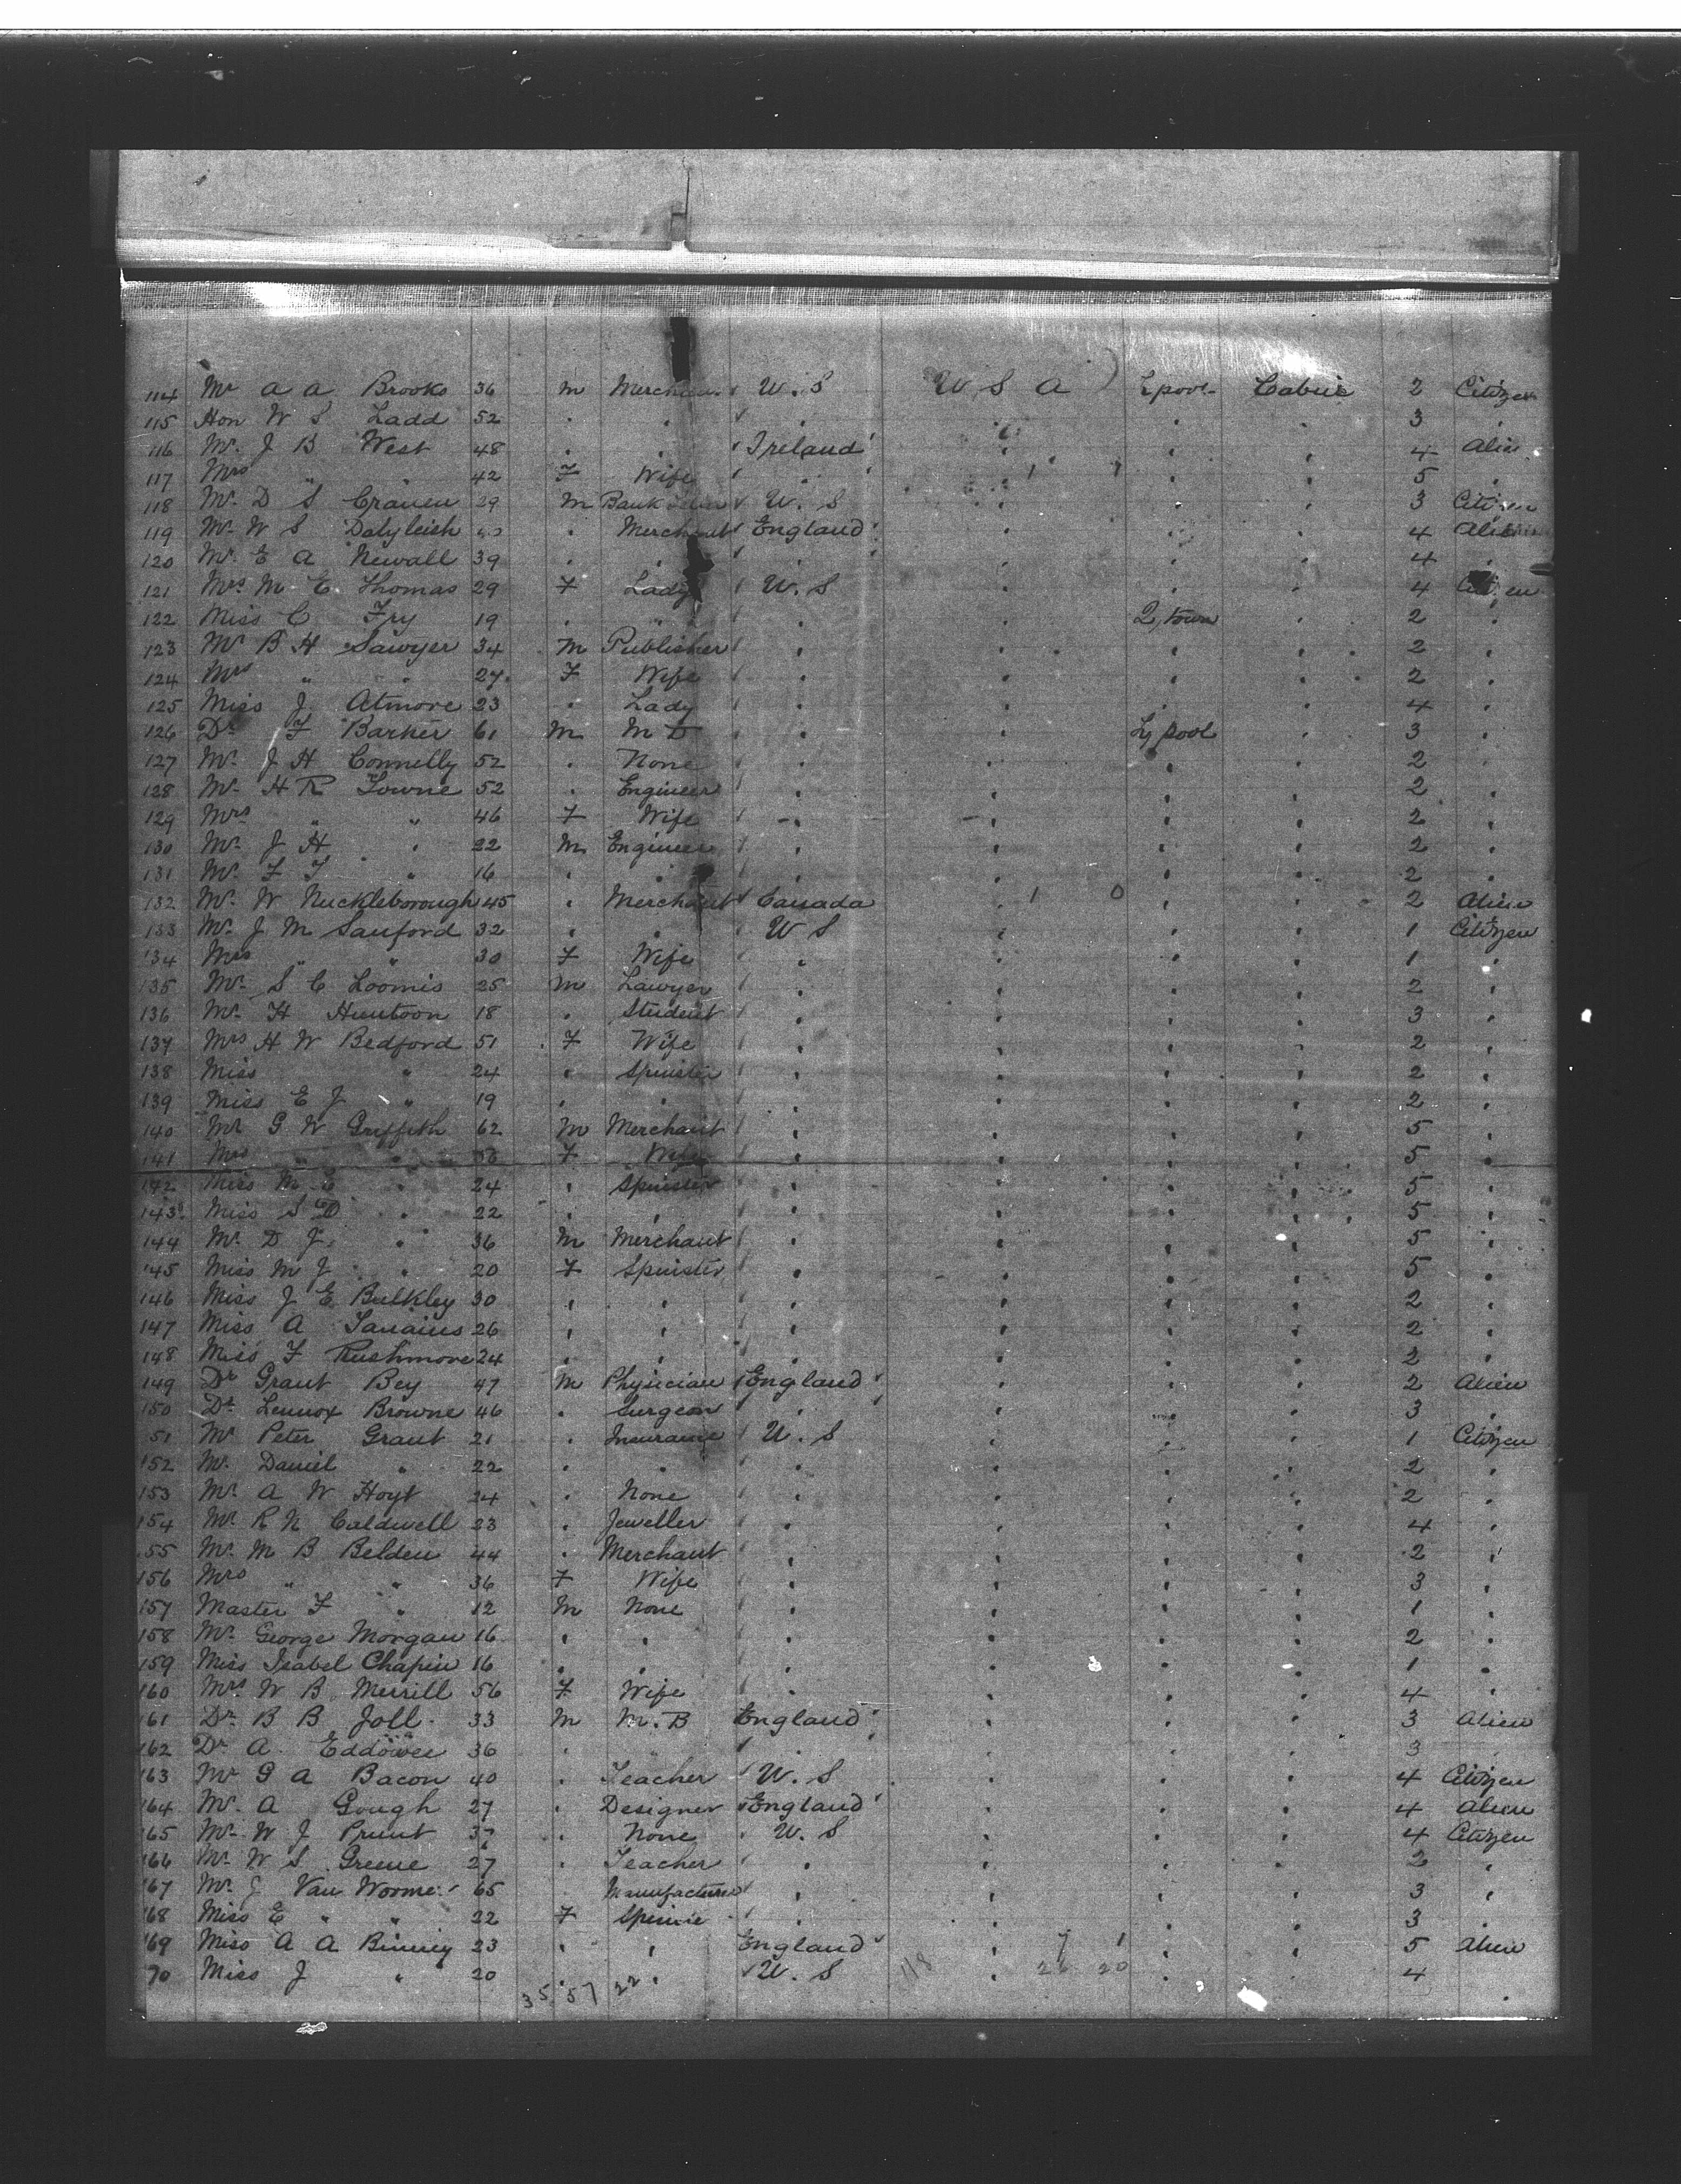 114 Mr A A Brooks 36 M Merchant U.S U S A L'pool Cabin 2 Citizen
115 Hon W S Ladd 52 " " " " " " 3 "
116 Mr J B West 48 " " Ireland " " " 4 Alien
117 Mrs " " 42 F Wife " " " " 5 "
118 Mr D S Craven 29 M Bank U.S " " " 3 Citizen
119 Mr W S Dalgleish " Merchant England " " " 4 Alien
120 Mr E A Newall 39 " " " " " " 4 "
121 Mrs M E Thomas 29 F Lady U.S " " " 4 Citizen
122 Miss C Fry 19 " " " " Q town " 2 "
123 Mr B H Sawyer 34 M Publisher " " " " 2 "
124 Mrs " " 27 F Wife " " " " 2 "
125 Miss J. Atmore 23 " Lady " " " " 4 "
126 Dr F Barker 61 M M D " " L'pool " 3 "
127 Mr J H Connelly 52 " None " " " " 2 "
128 Mr H R Towne 52 " Engineer " " " " 2 "
129 Mrs " " 46 F Wife " " " " 2 "
130 Mr J H " 22 M Engineer " " " " 2 "
131 Mr F T " 16 " " " " " " 2 "
132 Mr W Nuckleborough 45 " Merchant Canada " 1 0 " " 2 Alien
133 Mr J M Sanford 32 " " U S " " " 1 Citizen
134 Mrs " " 30 F Wife " " " " 1 "
135 Mr S C Loomis 25 M Lawyer " " " " 2 "
136 Mr H Huntoon 18 " Student " " " " 3 "
137 Mrs H W Bedford 51 F Wife " " " " 2 "
138 Miss " 24 " Spinster " " " " 2 "
139 Miss E J " 19 " " " " " " 2 "
140 Mr G W Griffith 62 M Merchant " " " " 5 "
141 Mrs " " F Wife " " " " 5 "
142 Miss M E " 24 " Spinster " " " " 5 "
143 Miss S D " 22 " " " " " " 5 "
144 Mr D J " 36 M Merchant " " " " 5 "
145 Miss M J " 20 F Spinster " " " " 5 "
146 Miss J E Bulkley 30 " " " " " " 2 "
147 Miss A 26 " " " " " " 2 "
148 Miss F Rushmore 24 " " " " " " 2 "
149 Dr Grant Bey 47 M Physician England " " " 2 Alien
150 Dr Lennox Browne 46 " Surgeon " " " " 3 "
51 Mr Peter Grant 21 " Insurance U.S " " " 1 Citizen
152 Mr Daniel " 22 " " " " " " 2 "
153 Mr A W Hoyt 24 " None " " " " 2 "
154 Mr R N Caldwell 33 " Jeweller " " " " 4 "
155 Mr M B Belden 44 " Merchant " " " " 2 "
156 Mrs " " 36 F Wife " " " " 3 "
157 Master F " 12 M None " " " " 1 "
158 Mr George Morgan 16 " " " " " " 2 "
159 Miss Isabel Chapin 16 " " " " " " 1 "
160 Mrs W B Merrill 56 F Wife " " " " 4 "
161 Dr B B Joll 33 M M.B England " " " 3 Alien
162 Dr A. Eddowes 36 " " " " " " 3 "
163 Mr G A Bacon 40 " Teacher U.S " " " 4 Citizen
164 Mr A Gough 27 " Designer England " " " 4 Alien
165 Mr W J 37 " None U.S " " " 4 Citizen
166 Mr W S Greene 27 " Teacher " " " " 2 "
167 Mr J Van Wormer 65 " Manufacturer " " " " 3 "
168 Miss E " " 22 F " " " " 3 "
169 Miss A A Binney 23 " " England " 7 1 " " 5 Alien
70 Miss J " 20 " " U.S 118 " 26 20 " " 4 "
35 57 22